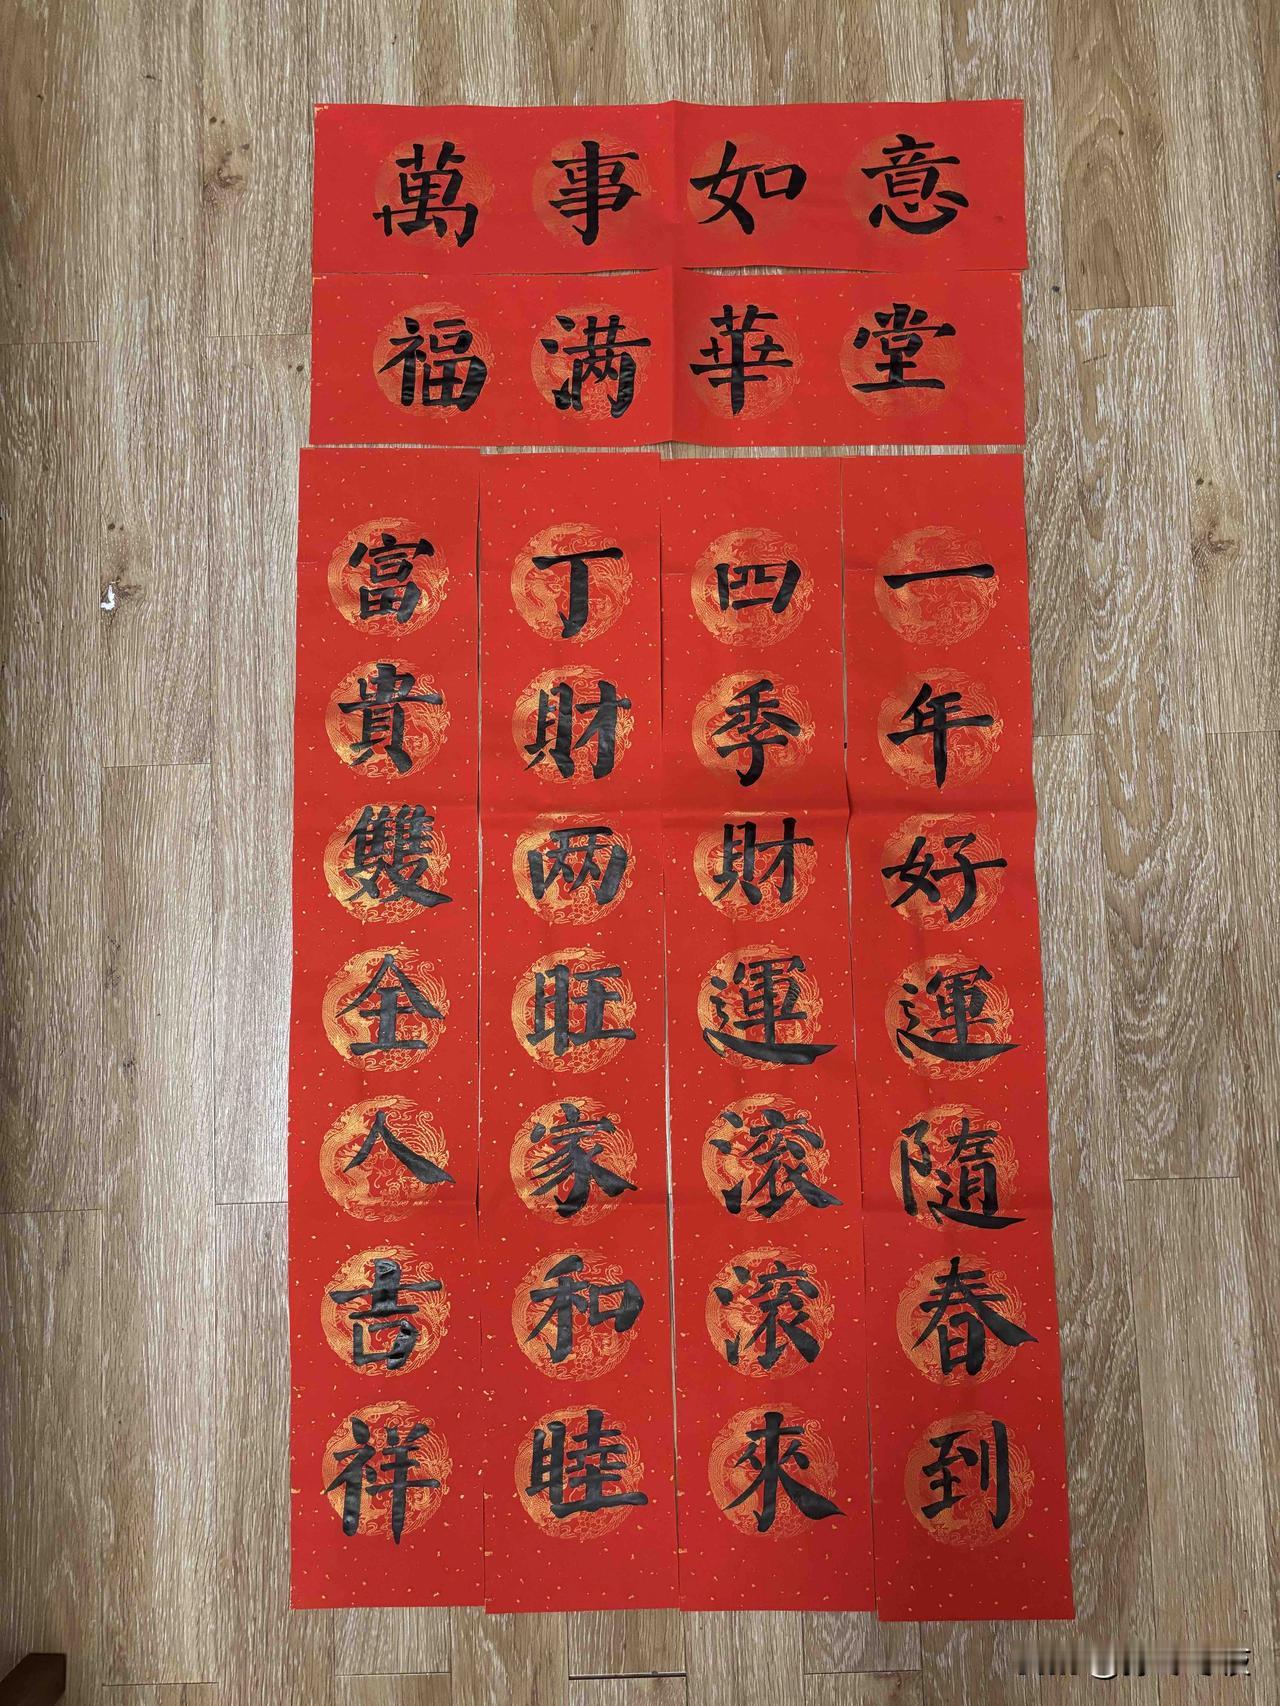 萬事如意
福满華堂
一年好運隨春到
四季財運滚滚來
丁財两旺家和睦
富貴雙全人吉祥